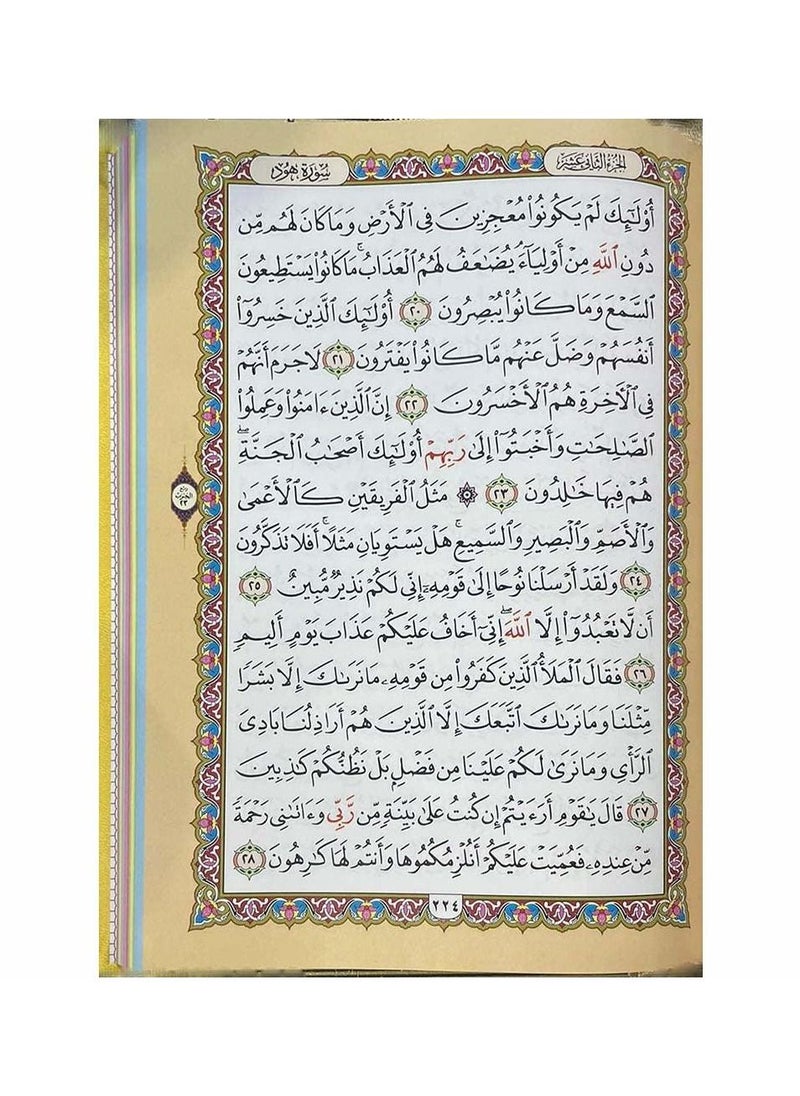 الجزء الثاني عشر
سورة هود
أُوْلَٰٓئِكَ لَمْ يَكُونُواْ مُعْجِزِينَ فِي ٱلْأَرْضِ وَمَا كَانَ لَهُم مِّن
دُونِ ٱللَّهِ مِنْ أَوْلِيَآءَ يُضَٰعَفُ لَهُمُ ٱلْعَذَابُ ۚ مَا كَانُواْ يَسْتَطِيعُونَ
ٱلسَّمْعَ وَمَا كَانُواْ يُبْصِرُونَ ٢٠ أُوْلَٰٓئِكَ ٱلَّذِينَ خَسِرُوٓاْ
أَنفُسَهُمْ وَضَلَّ عَنْهُم مَّا كَانُواْ يَفْتَرُونَ ٢١ لَا جَرَمَ أَنَّهُمْ
فِي ٱلْأَخِرَةِ هُمُ ٱلْأَخْسَرُونَ ٢٢ إِنَّ ٱلَّذِينَ ءَامَنُواْ وَعَمِلُواْ
ٱلصَّٰلِحَٰتِ وَأَخْبَتُوٓاْ إِلَىٰ رَبِّهِمْ أُوْلَٰٓئِكَ أَصْحَٰبُ ٱلْجَنَّةِ ۖ
هُمْ فِيهَا خَٰلِدُونَ ٢٣ ۞ مَثَلُ ٱلْفَرِيقَيْنِ كَٱلْأَعْمَىٰ
وَٱلْأَصَمِّ وَٱلْبَصِيرِ وَٱلسَّمِيعِ ۚ هَلْ يَسْتَوِيَانِ مَثَلًا ۚ أَفَلَا تَذَكَّرُونَ
٢٤ وَلَقَدْ أَرْسَلْنَا نُوحًا إِلَىٰ قَوْمِهِۦٓ إِنِّي لَكُمْ نَذِيرٌ مُّبِينٌ ٢٥
أَن لَّا تَعْبُدُوٓاْ إِلَّا ٱللَّهَ ۖ إِنِّيٓ أَخَافُ عَلَيْكُمْ عَذَابَ يَوْمٍ أَلِيمٍ
٢٦ فَقَالَ ٱلْمَلَأُ ٱلَّذِينَ كَفَرُواْ مِن قَوْمِهِۦ مَا نَرَىٰكَ إِلَّا بَشَرًا
مِّثْلَنَا وَمَا نَرَىٰكَ ٱتَّبَعَكَ إِلَّا ٱلَّذِينَ هُمْ أَرَاذِلُنَا بَادِيَ
ٱلرَّأْيِ وَمَا نَرَىٰ لَكُمْ عَلَيْنَا مِن فَضْلٍۭ بَلْ نَظُنُّكُمْ كَٰذِبِينَ
٢٧ قَالَ يَٰقَوْمِ أَرَءَيْتُمْ إِن كُنتُ عَلَىٰ بَيِّنَةٍ مِّن رَّبِّي وَءَاتَىٰنِي رَحْمَةً
مِّنْ عِندِهِۦ فَعُمِّيَتْ عَلَيْكُمْ أَنُلْزِمُكُمُوهَا وَأَنتُمْ لَهَا كَٰرِهُونَ ٢٨
٢٢٤